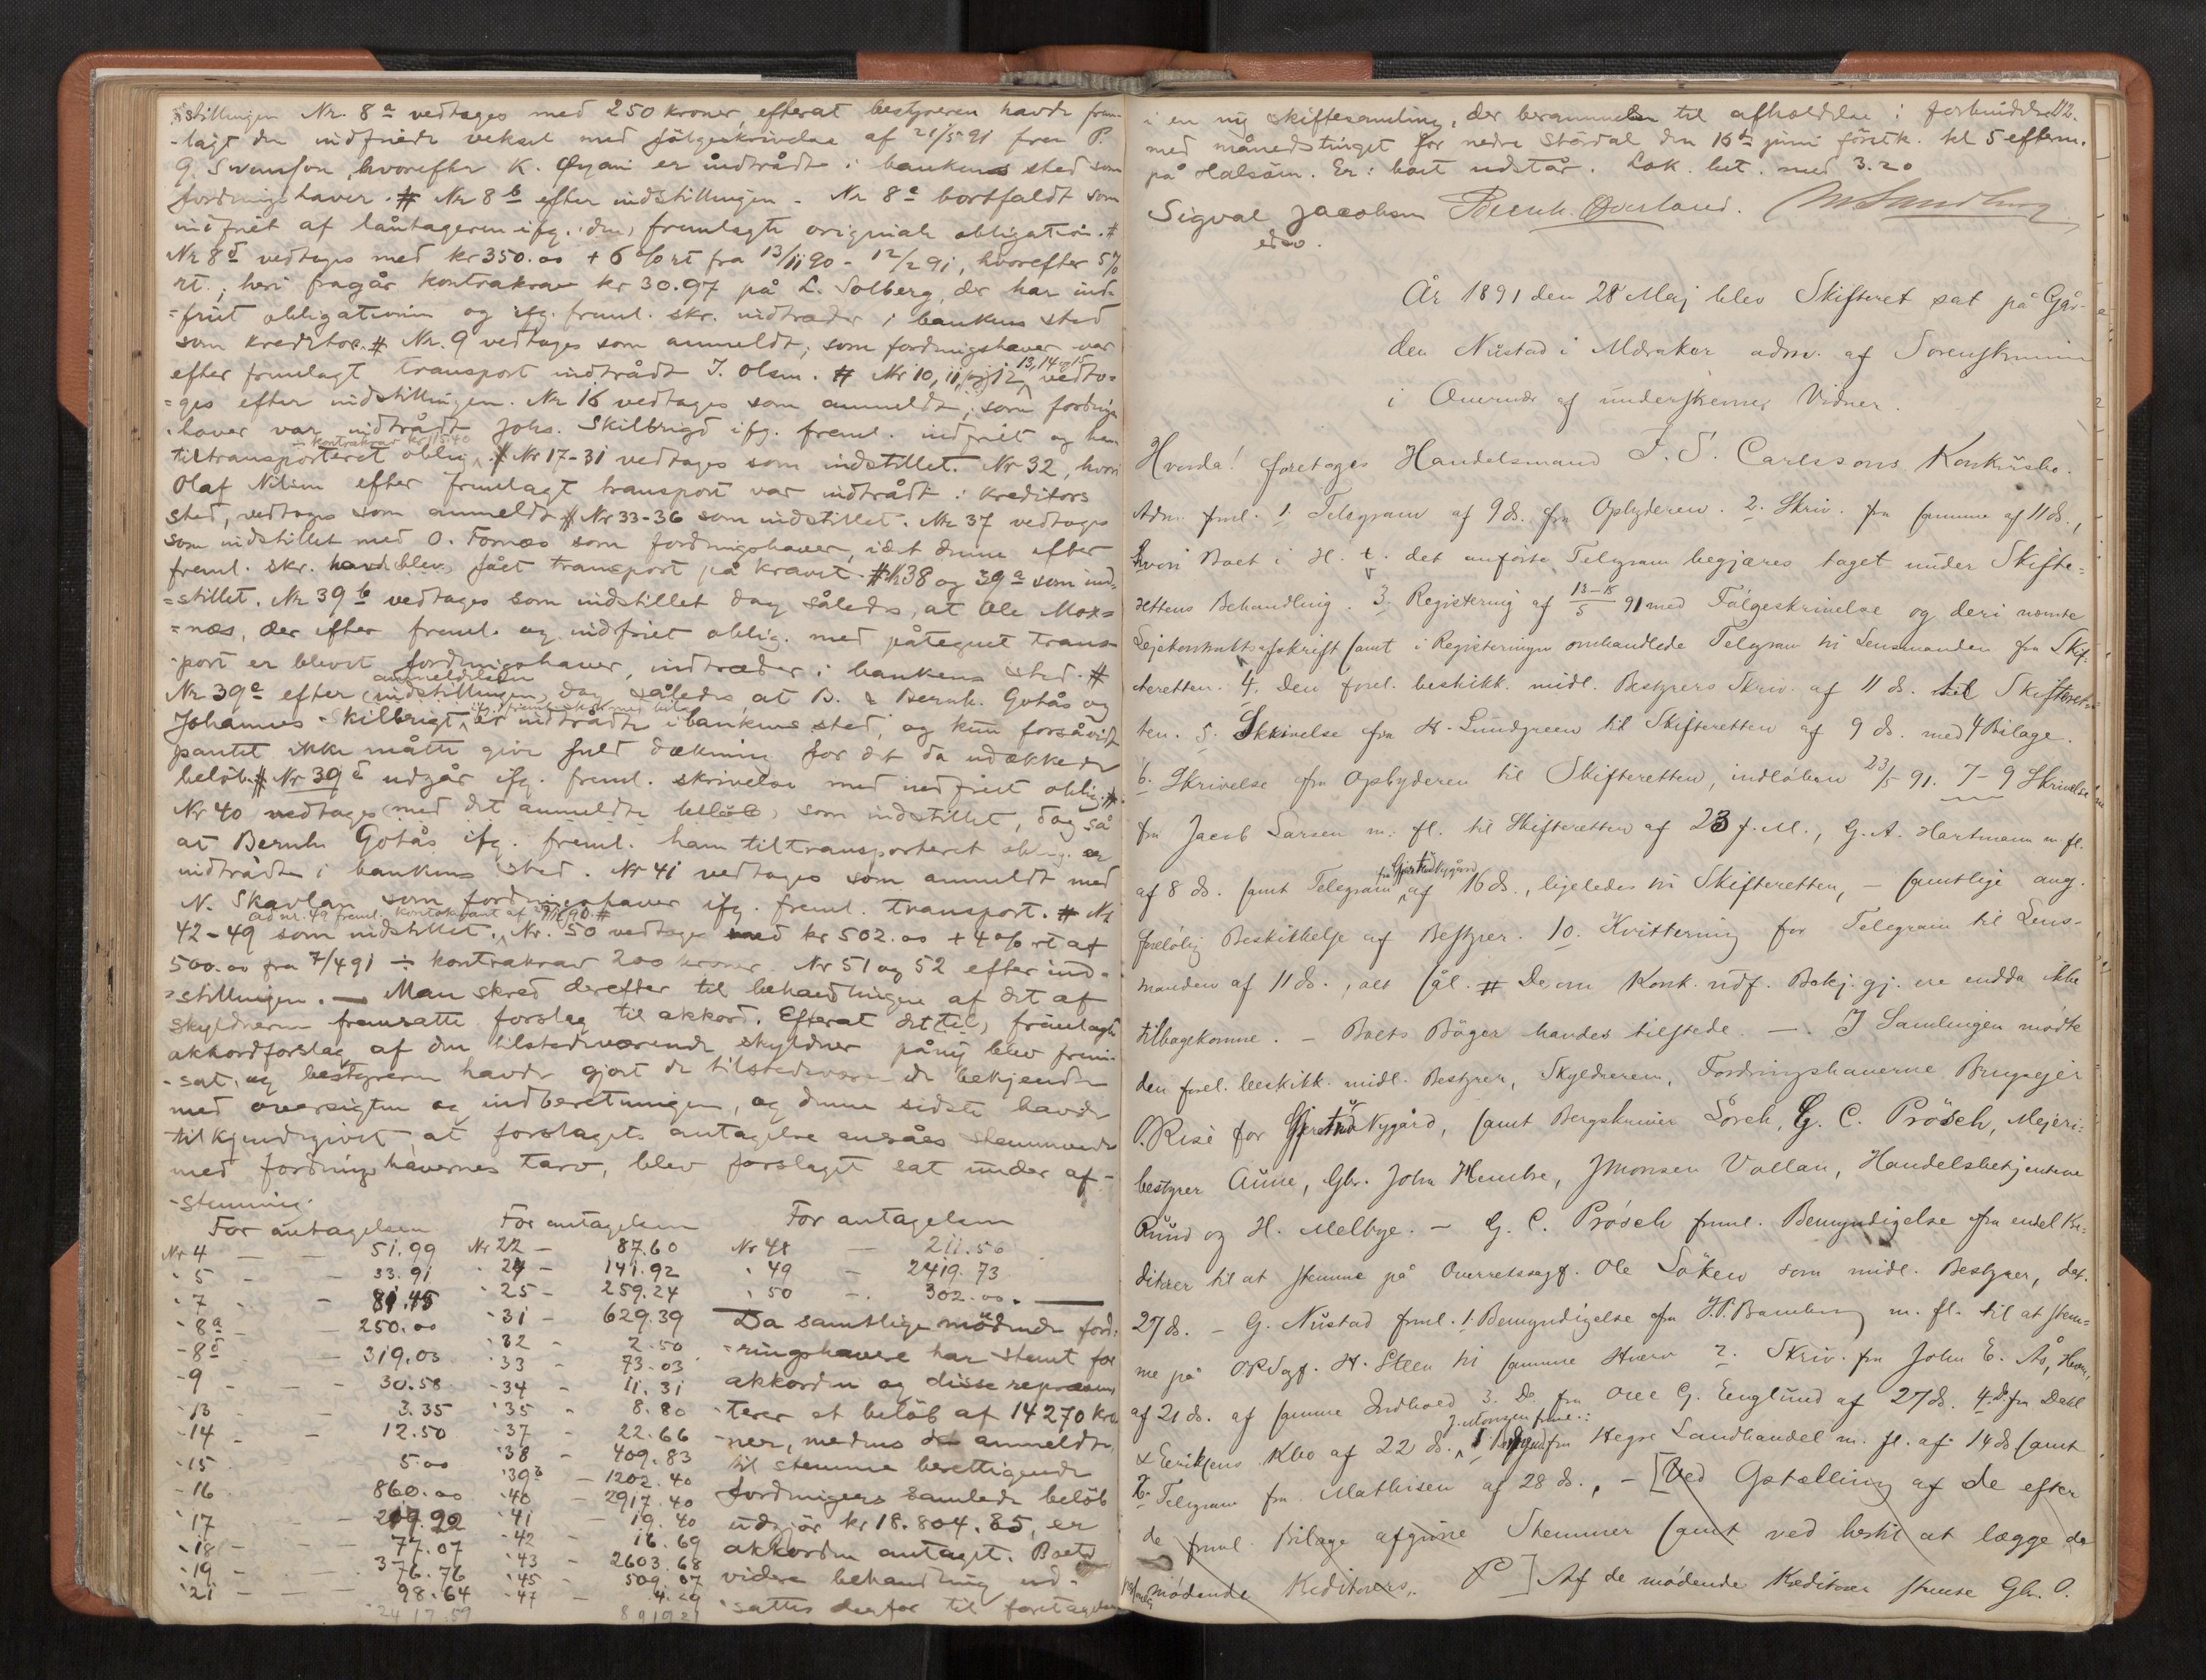 -stillingen Nr. 8a vedtages med 250 kroner, efterat bestyreren havde frem-
-lagt den indfriede veksel med følgeskrivelse af 21/5 91 fra P.
G. Svenson, hvorefter K. Øyan er indtrådt i bankens sted som
fordringshaver. # Nr 8b efter indstillingen. Nr 8c bortfaldt som
indfriet af låntageren ifg. den fremlagte originale obligation. #
Nr 8d vedtages med kr 350.00 + 6 % rt fra 13/11 90 - 12/2 91, hvorefter 5 %
rt.; heri fragår kontrakrav kr 30.97 på L. Solberg, der har ind-
=friet obligationen og ifg. freml. skr. indtræder i bankens sted
som kreditor. # Nr. 9 vedtages som anmeldt; som fordringshaver var
efter fremlagt transport indtrådt J. Olsen. # Nr 10, 11, 12, 13, 14 og 15 vedta-
=ges efter indstillingen. Nr 16 vedtages som anmeldt; som fordrings-
-haver var indtrådt Johs. Skilbrigt ifg. freml. indfriet og ham
tiltransporteret oblig. ÷ kontrakrav kr 115.40 # Nr 17-31 vedtages som indstillet. Nr 32, hvori
Olaf Nilsen efter fremlagt transport var indtrådt i kreditors
sted, vedtages som anmeldt # Nr 33-36 som indstillet. Nr 37 vedtages
som indstillet med O. Fornæs som fordringshaver, idet denne efter
freml. skr. havde fået transport på kravet. # Nr 38 og 39a som ind-
=stillet. Nr 39b vedtages som indstillet dog således, at Ole Mox-
=næs, der efter freml. og indfriet oblig. med påtegnet trans-
-port er blevet fordringshaver, indtræder i bankens sted. #
Nr 39c efter anmeldelsen (indstillingen) dog således, at B. & Bernh. Gotås og
Johannes Skilbrigt er indtrådt i bankens sted, og kun forsåvidt
pantet ikke måtte give fuld dækning for det da udækkede
beløb. # Nr 39d udgår ifg. freml. skrivelse med indfriet oblig. #
Nr 40 vedtages (med det anmeldte beløb) som indstillet, dog så
at Bernh. Gotås ifg. freml. ham tiltransporteret oblig. er
indtrådt i bankens sted. Nr 41 vedtages som anmeldt med
N. Skavlan som fordringshaver ifg. freml. transport. # Nr
42-49 som indstillet. ad nr. 49 freml. Nr. 50 vedtages med kr 502.00 + 4 % rt af
500.00 fra 7/4 91 ÷ kontrakrav 200 kroner. Nr 51 og 52 efter ind-
=stillingen. — Man skred derefter til behandlingen af det af
skyldneren fremsatte forslag til akkord. Efterat det fremlagte
akkordforslag af den tilstedeværende skyldner påny blev frem-
-sat, og bestyreren havde gjort de tilstedeværende bekjendte
med oversigten og indberetningen, og denne sidste havde
tilkjendegivet at forslagets antagelse ansåes stemmende
med fordringshavernes tarv, blev forslaget sat under af-
-stemning.
For antagelsen For antagelsen For antagelsen
Nr 4 — 51.99 Nr 22 — 87.60 Nr 48 — 211.56
" 5 - 33.91 " 24 - 141.92 " 49 - 2419.73
" 7 - 81.45 " 25 - 259.24 " 50 - 302.00. —
" 8a - 250.00 " 31 - 629.39
- 8d - 319.03 " 32 - 2.50
- 9 - 30.58 " 33 - 73.03
- 13 - 3.35 - 34 - 11.31
- 14 - 12.50 " 35 - 8.80
- 15 5.00 - 37 - 22.66
- 16 860.00 " 38 - 409.83
" 17 - 22 " 39b - 1202.40
- 18 - 77.07 " 40 - 2917.40
- 19 - 376.76 " 41 - 19.40
" 21 - 98.64 - 42 - 16.69
- 43 - 2603.68
- 45 - 509.07
- 47 - 4.29
Da samtlige mødende ford-
=ringshavere har stemt for
akkorden og disse repræsen-
-terer et beløb af 14270 kro-
-ner, medens de anmeldte
til stemme berettigende
fordringers samlede beløb
udgjør kr 18.804.85, er
akkorden antaget. Boets
videre behandling ud-
sattes derfor til foretagelse
112.
i en ny skiftesamling, der berammedes til afholdelse i forbindelse
med månedstinget for nedre Stördal den 16de juni förstk. kl 5 efterm.
på Halsöen. Er: bort udstår. Lok. bet. med 3.20
Sigval Jacobsen Bernh. Øverland. M Sandberg
edsv.
År 1891 den 28 Maj blev Skifteret sat på Går-
den Nustad i Meraker adm. af Sorenskriveren
i Overvær af underskrevne Vidner.
Hvorda! foretoges Handelsmand J. S. Carlssons Konkursbo.
Adm. freml. 1. Telegram af 9 ds. fra Opbyderen. 2. Skriv. fra samme af 11 ds.,
hvori Boet i H. t. det anførte Telegram begjæres taget under Skifte-
rettens Behandling. 3. Registrering af 13-15/5 91 med Følgeskrivelse og deri nævnte
Lejekontraktsafskrift samt i Registeringen omhandlede Telegram til Lensmanden fra Skif-
teretten. 4. Den forel. beskikk. midl. Bestyrers Skriv. af 11 ds. til Skifteret-
ten. 5. Skrivelse fra H. Lundgreen til Skifteretten af 9 ds. med 4 Bilage.
6. Skrivelse fra Opbyderen til Skifteretten, indløben 23/5 91. 7-9 Skrivelse
fra Jacob Larsen m. fl. til Skifteretten af 23 f. M., G. A. Hartmann m. fl.
af 8 ds. samt Telegram fra Gjertrud Nygård af 16 ds., ligeledes til Skifteretten, — samtlige ang.
foreløbig Beskikkelse af Bestyrer. 10. Kvittering for Telegram til Lens-
manden af 11 ds., alt sål. # De om Konk. udf. Bekj.gj. ere endda ikke
tilbagekomne. — Boets Bøger havdes tilstede. —. I Samlingen mødte
den forel. beskikk. midl. Bestyrer, Skyldneren, Fordringshaverne Brugsejer
O. Risé for Gjertrud Nygård, samt Bergskriver Lorch, G. C. Prösch, Mejeri-
bestyrer Aune, Gbr. John Hembre, J Monsen Vollan, Handelsbetjentene
Ruud og H. Melbye. — G. C. Prösch freml. Bemyndigelse fra endel Kre-
ditorer til at stemme på Overretssagf. Ole Löken som midl. Bestyrer, dat.
27 ds. — G. Nustad freml. 1. Bemyndigelse fra m. fl. til at stem-
me på ORSagf. H. Steen til samme Hverv 2. Skriv. fra John E. Ås,
af 21 ds. af samme Indhold 3. Do. fra Ole G. Englund af 27 ds. 4. Do. fra Dahl
& Eriksens Kbo af 22 ds. J. Monsen freml.: 1. fra Hegre Landhandel m. fl. af 14 ds samt
2. Telegram fra Mathisen af 28 ds., — [Ved Optælling af de efter
de freml. Bilage afgivne Stemmer samt ved hertil at lægge de
mødende Kreditorers ] Af de mødende Kreditorer stemte Gbr. O.